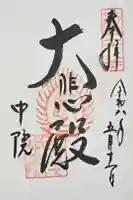 奉拝
令和六年五月十二日
大悲殿
中院